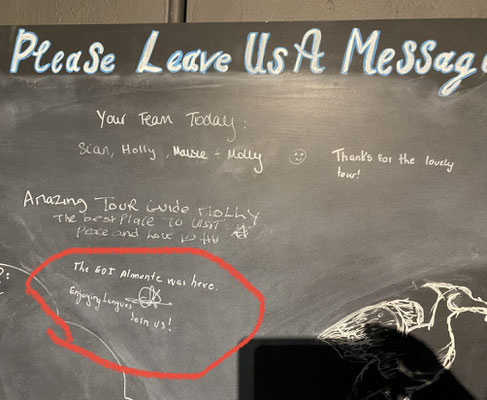 Please Leave Us A Messag
Your Team Today:
Sian, Holly, Maisie + Molly
Thanks for the lovely
tour!
Amazing Tour Guide Molly
The best place to visit
peace and love
The EOI Almonte was here.
Enjoying
Join us!